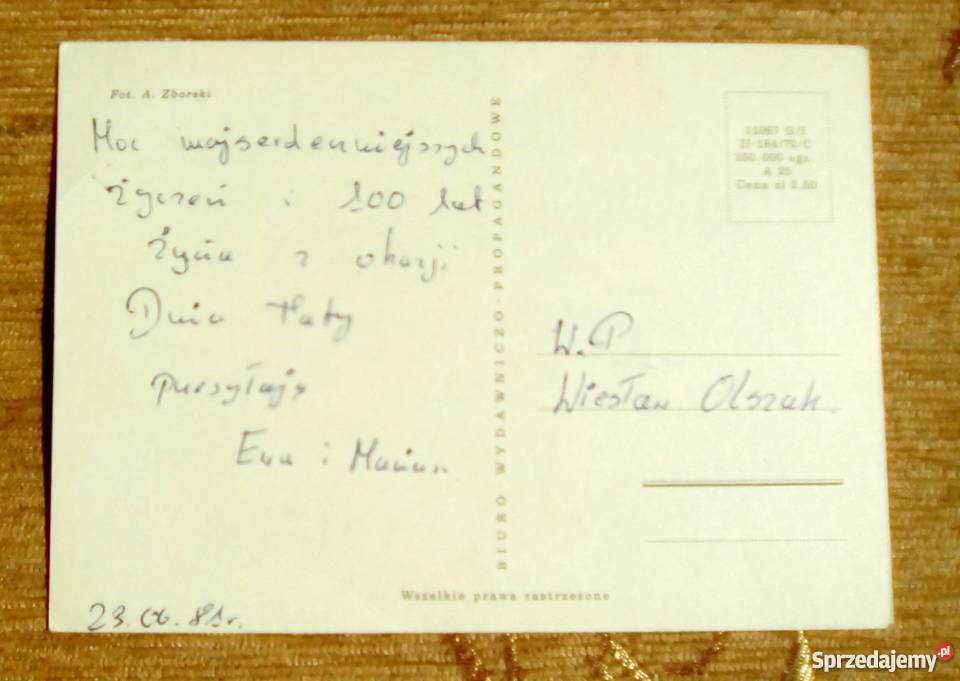 Fot. A. Zborski
Moc najserdeczniejszych
życzeń i 100 lat
życia z okazji
Dnia Taty
przesyłają
Ewa i Mariusz
23.06.81r.
BIURO WYDAWNICZO-PROPAGANDOWE
11067 G/I
II-184/72/C
250.000 egz.
A 25
Cena zł 2,50
W.P
Wiesław Olszak
Wszelkie prawa zastrzeżone
Sprzedajemy.pl